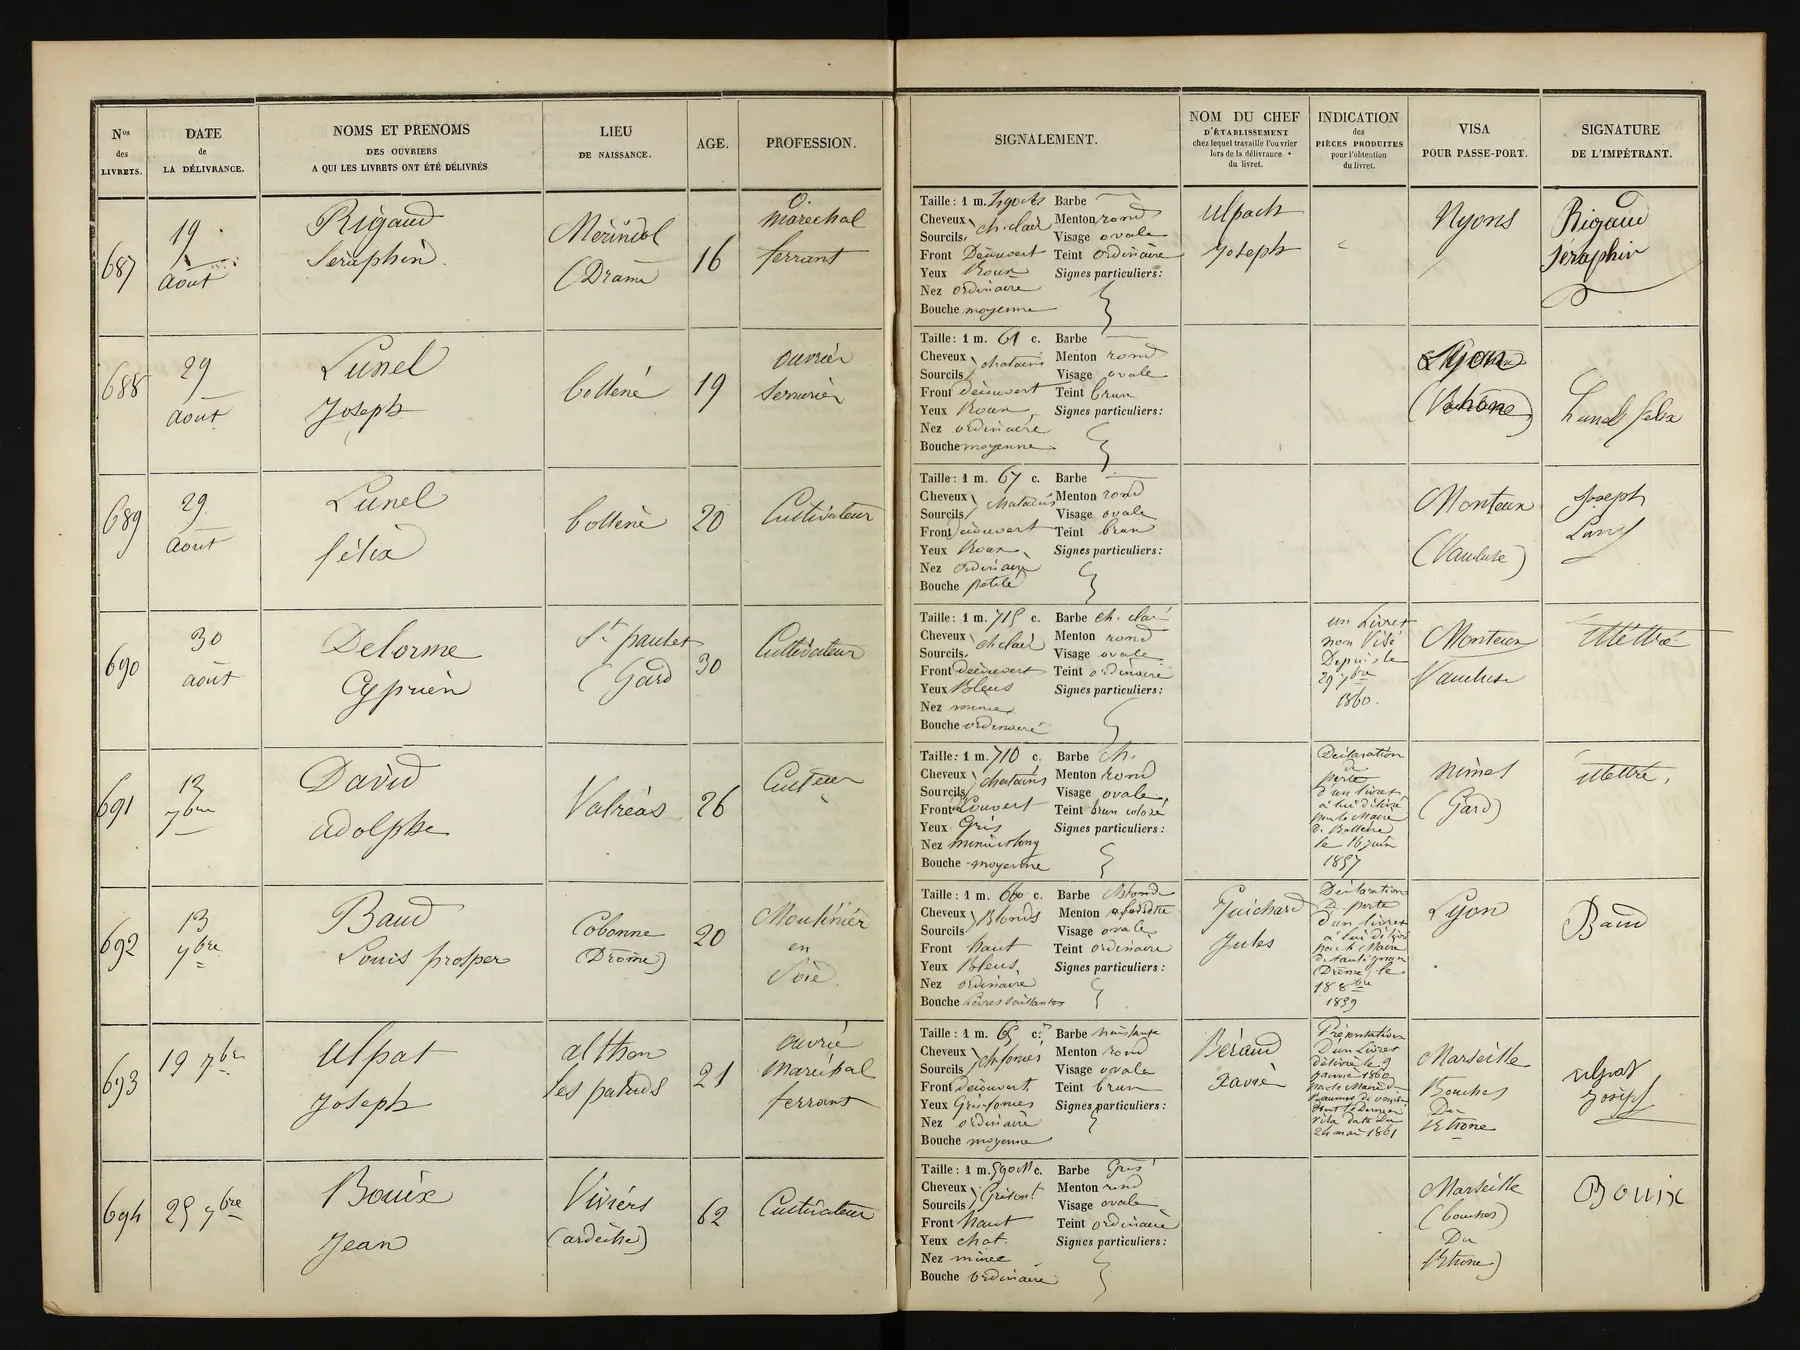 Nos
des
LIVRETS.
DATE
de
LA DÉLIVRANCE.
NOMS ET PRENOMS
DES OUVRIERS
A QUI LES LIVRETS ONT ÉTÉ DÉLIVRÉS
LIEU
DE NAISSANCE.
AGE.
PROFESSION.
SIGNALEMENT.
NOM DU CHEF
D'ÉTABLISSEMENT
chez lequel travaille l'ouvrier
lors de la délivrance
du livret.
INDICATION
des
PIÈCES PRODUITES
pour l'obtention
du livret.
VISA
POUR PASSE-PORT.
SIGNATURE
DE L'IMPÉTRANT.
687
19
Août
Rigaud
Seraphin
Mérindol
(Drame
16
Marechal
ferrant
Taille: 1 m. Barbe
Cheveux ch. clair Menton rond
Sourcils Visage ovale
Front Découvert Teint ordinaire
Yeux Roux Signes particuliers:
Nez ordinaire
Bouche moyenne
Ulpach
Joseph
Nyons
Rigaud
Séraphin
688
29
Août
Lunel
Joseph
bollené
19
ouvrier
Serrurier
Taille: 1 m. 61 c. Barbe
Cheveux chatains Menton rond
Sourcils Visage ovale
Front découvert Teint brun
Yeux Roux Signes particuliers:
Nez ordinaire
Bouche moyenne
Lyon
(Rhône)
Lunel felix
689
29
Août
Lunel
félix
bollène
20
Cultivateur
Taille: 1 m. 67 c. Barbe
Cheveux chatains Menton rond
Sourcils Visage ovale
Front découvert Teint brun
Yeux Roux Signes particuliers:
Nez ordinaire
Bouche petite
Monteux
(Vaucluse)
Joseph
690
30
août
Delorme
Cyprien
St paulet
(Gard
30
Cultivateur
Taille: 1 m. 715 c. Barbe ch. clair
Cheveux ch clair Menton rond
Sourcils Visage ovale
Front découvert Teint ordinaire
Yeux Bleus Signes particuliers:
Nez mince
Bouche ordinaire
un Livret
non Visé
Depuis le
29 7bre
1860.
Monteux
Vaucluse
illettré
691
13
7bre
David
Adolphe
Valréas
26
Culteur
Taille: 1 m. 710 c. Barbe ch.
Cheveux chatains Menton rond
Sourcils Visage ovale
Front couvert Teint brun coloré
Yeux Gris Signes particuliers:
Nez mince et long
Bouche moyenne
Déclaration
de
perte
d'un livret
à lui délivré
par le Maire
de Bollène
le 16 juin
1857
nimes
(Gard)
illettré.
692
13
7bre
Baud
Louis prosper
Cobonne
(Drôme)
20
Moulinier
en
Soie
Taille: 1 m. 660 c. Barbe blonde
Cheveux Blonds Menton a fossette
Sourcils Visage ovale
Front haut Teint ordinaire
Yeux Bleus Signes particuliers:
Nez ordinaire
Bouche Lèvres saillantes
Guichard
Jules
Déclaration
de perte
d'un livret
à lui délivré
par le Maire
(Drôme) le
18 8bre
1859
Lyon
Baud
693
19 7bre
Ulpat
Joseph
althen
les paluds
21
ouvrie
Maréchal
ferrant
Taille: 1 m. 65 c. Barbe naissante
Cheveux ch. foncés Menton rond
Sourcils Visage ovale
Front découvert Teint brun
Yeux Gris foncés Signes particuliers:
Nez ordinaire
Bouche moyenne
Béraud
Xavier
Présentation
D'un Livret
délivré le 9
janvier 1860
par le Maire de
Beaumes de venise
dont le dernier
visa date du
24 mai 1861
Marseille
Bouches
Du
Rhone
ulpat
Joseph
694
25 7bre
Bouix
Jean
Viviers
(ardèche)
62
Cultivateur
Taille: 1 m. c. Barbe Gris
Cheveux Grisont Menton rond
Sourcils Visage ovale
Front haut Teint ordinaire
Yeux chat. Signes particuliers:
Nez mince
Bouche ordinaire
Marseille
(bouches)
Du
Rhone)
Bouix